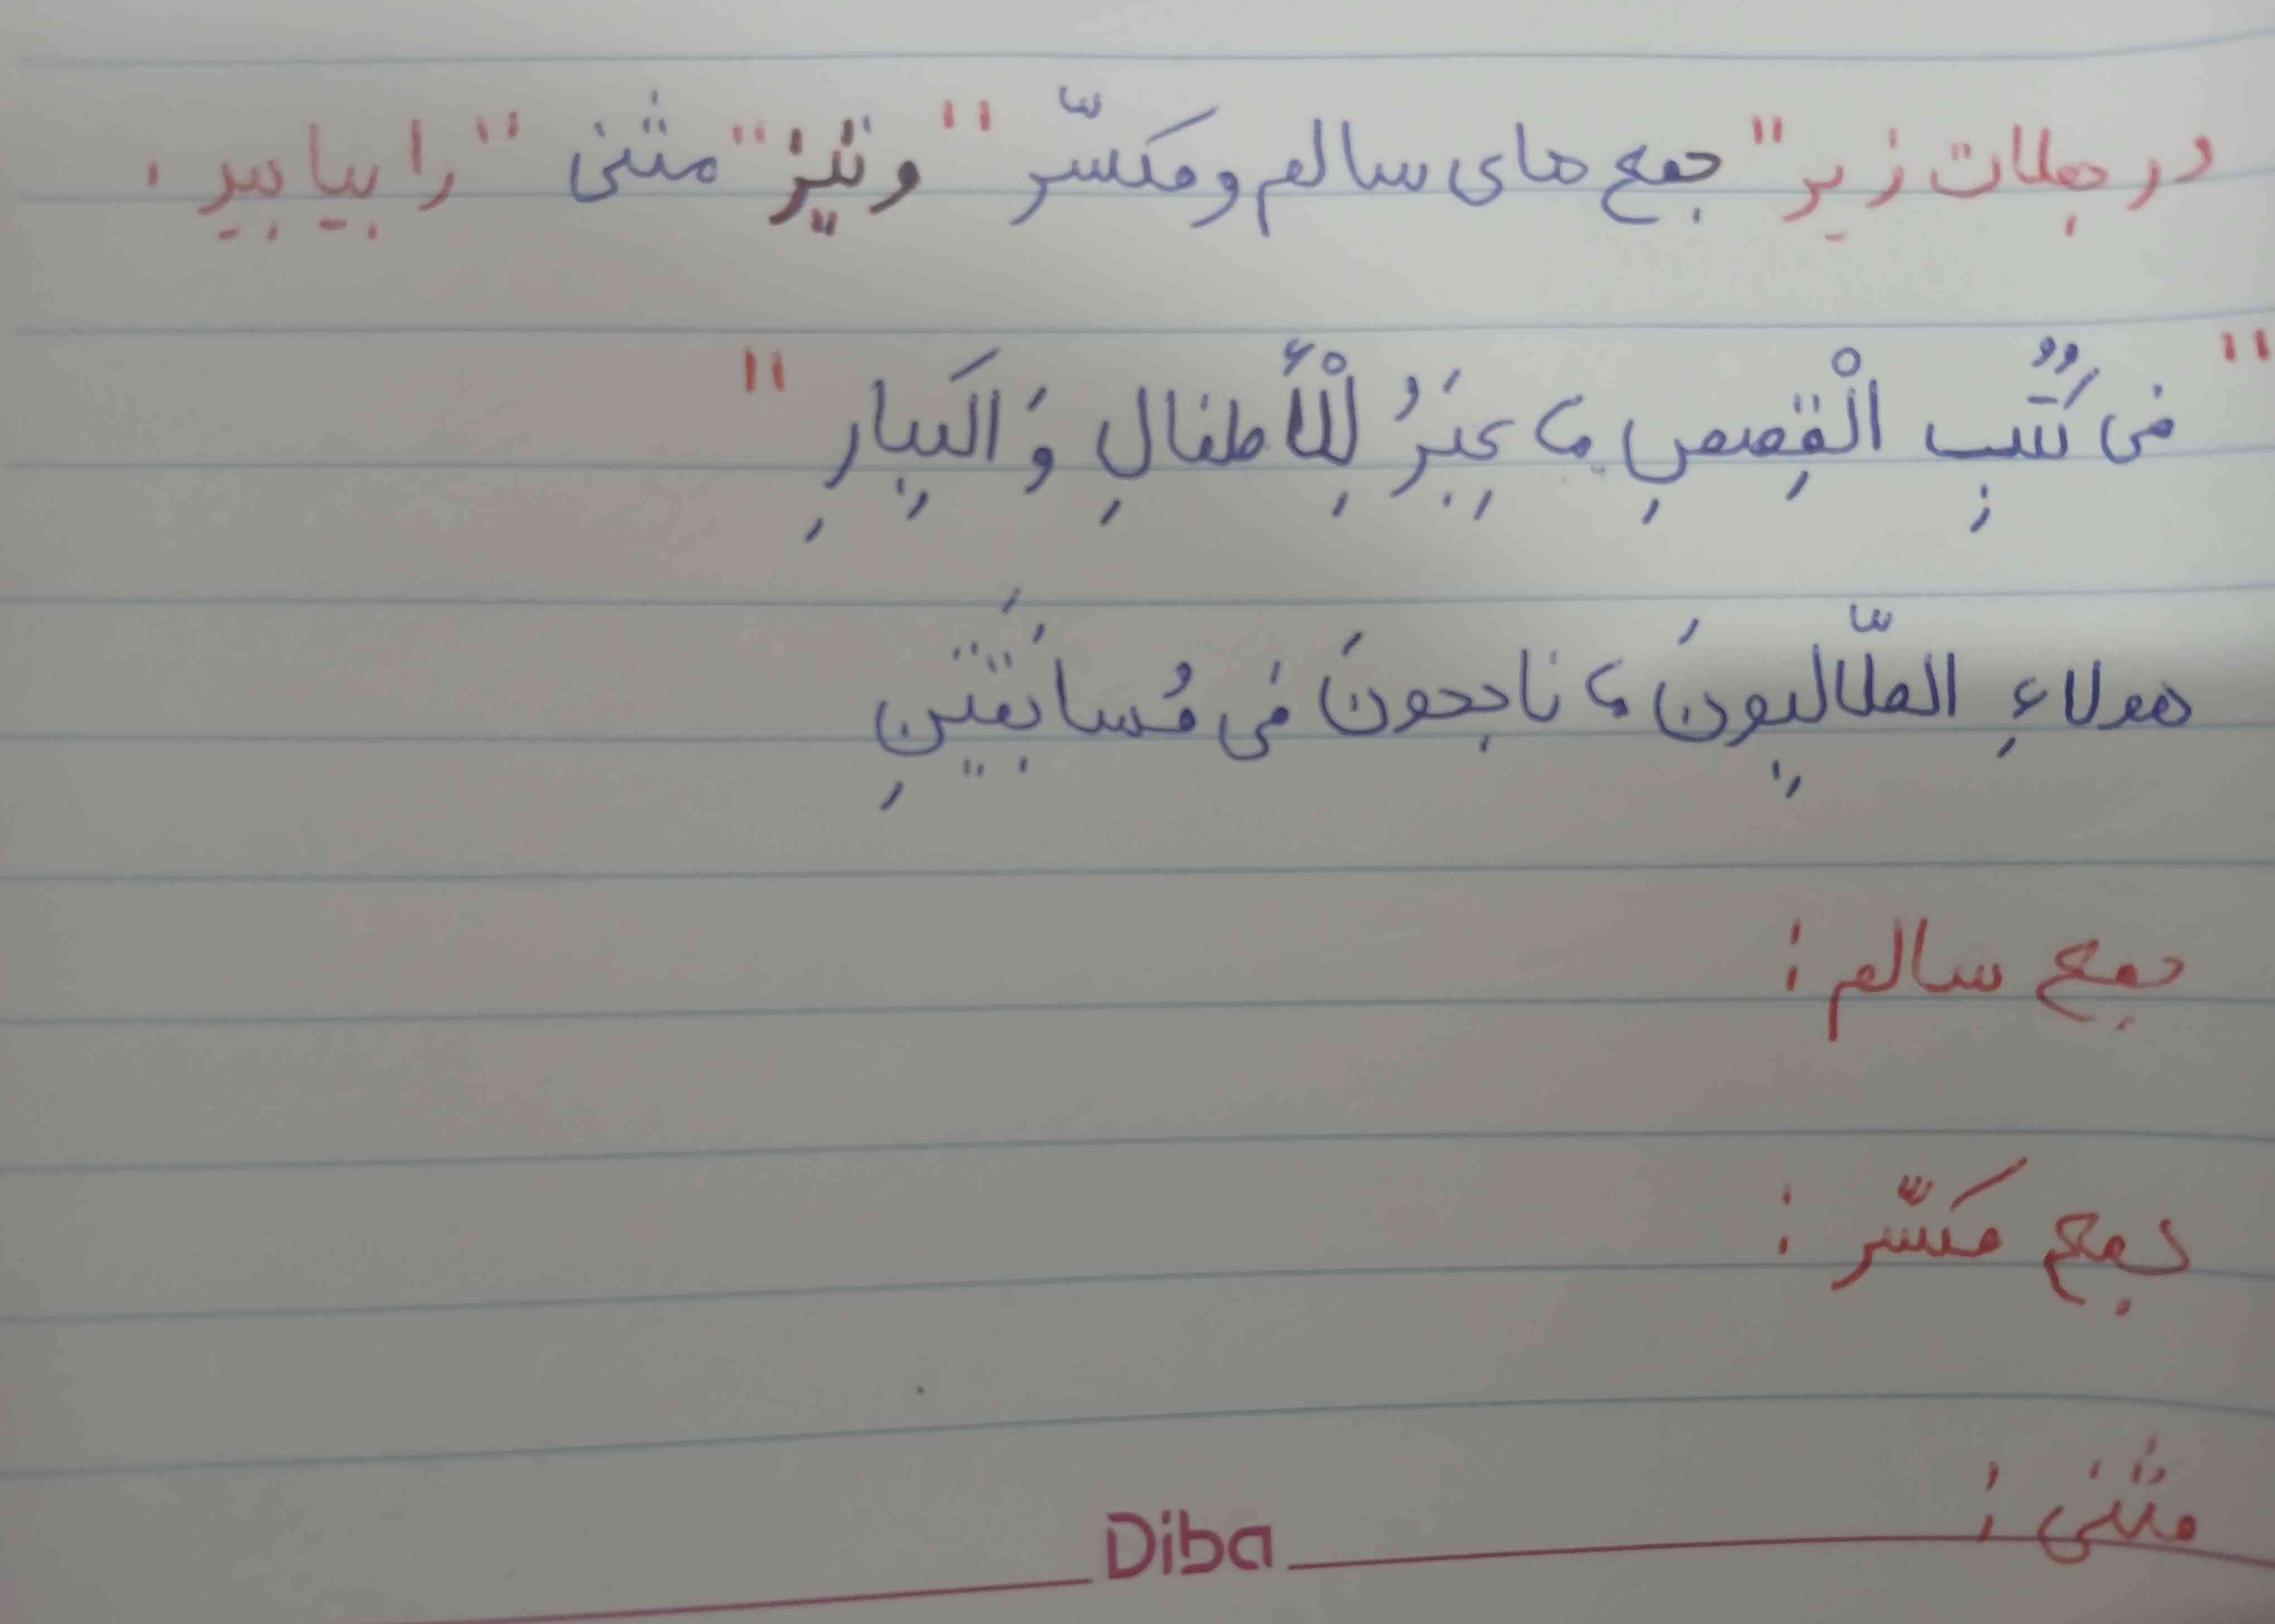 در جملات زیر "جمع های سالم و مکسّر" و نیز "مثنی" را بیابید .
"فی کُتُبِ الْقِصَصِ، عِبَرُ لِلْأَطفالِ وَ الکِبارِ"
هولاءِ الطّالِبونَ، ناجحونَ فی مُسابَقَتَینِ
جمع سالم :
جمع مکسّر :
مثنی :
Diba